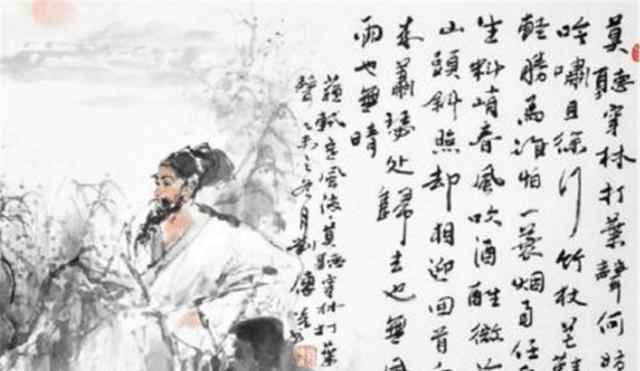 莫聽穿林打葉聲何妨
吟嘯且徐行竹杖芒鞋
輕勝馬誰怕一蓑烟雨任
生料峭春風吹酒醒微冷
山頭斜照却相迎回首
来蕭瑟处歸去也無風
雨也無晴
蘇軾定風波莫聽穿林打葉
聲乙未之月劉傳